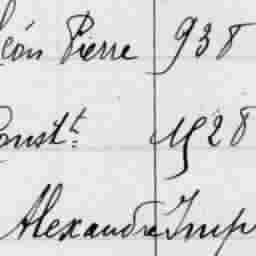 Léon Pierre 938
Const.t 1928
Alexandre Imp